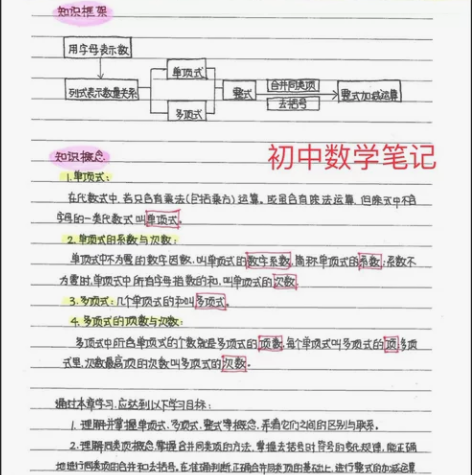 知识框架
用字母表示数
列式表示数量关系
单项式
多项式
整式
合并同类项
去括号
整式加减运算
知识概念
初中数学笔记
1.单项式:
在代数式中,若只含有乘法(包括乘方)运算。或虽含有除法运算,但除式中不含
字母的一类代数式叫单项式。
2.单项式的系数与次数:
单项式中不为零的数字因数,叫单项式的数字系数,简称单项式的系数;系数不
为零时,单项式中所有字母指数的和,叫单项式的次数
3.多项式:几个单项式的和叫多项式。
4.多项式的项数与次数:
多项式中所含单项式的个数就是多项式的项数,每个单项式叫多项式的项;多项
式里,次数最高项的次数叫多项式的次数。
通过本章学习,应达到以下学习目标:
1.理解并掌握单项式、多项式、整式等概念,弄清它们之间的区别与联系。
2.理解同类项概念,掌握合并同类项的方法,掌握去括号时符号的变化规律,能正确
地进行同类项的合并和去括号。在准确判断正确合并同类项的基础上,进行整式的加减运算